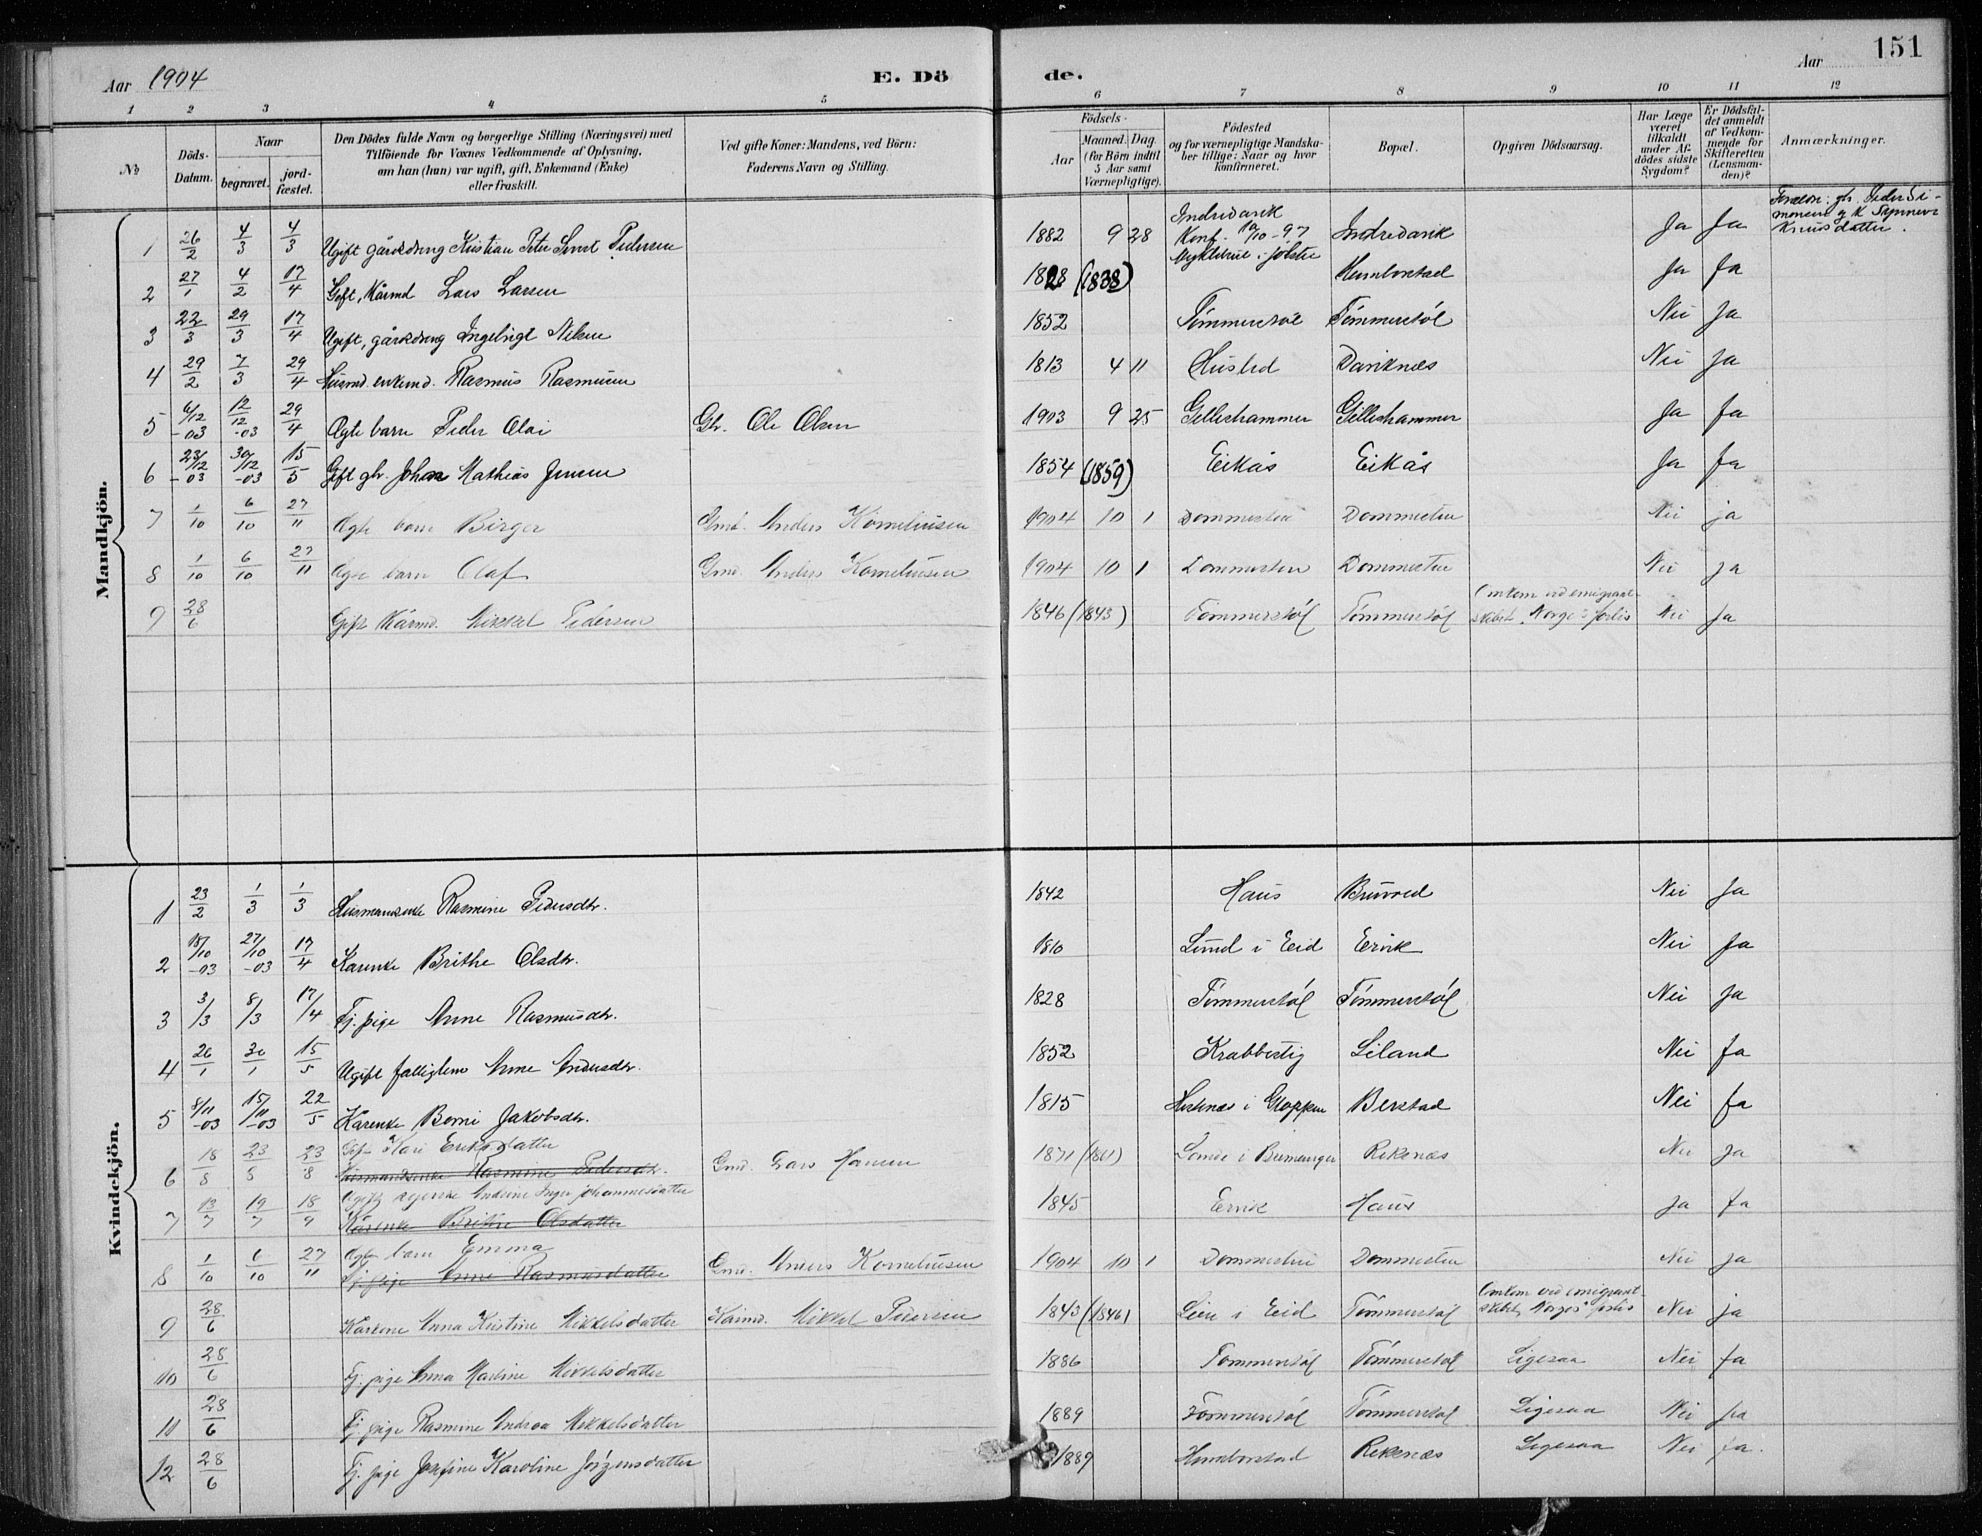 Aar 1904
E. Döde.
Aar
151
1 2 3 4 5 6 7 8 9 10 11 12
No
Döds-Datum.
Naar begravet. jordfæstet.
Den Dödes fulde Navn og borgerlige Stilling (Næringsvei) med Tilföiende for Voxnes Vedkommende af Oplysning, om han (hun) var ugift, gift, Enkemand (Enke) eller fraskilt.
Ved gifte Koner: Mandens, ved Börn: Faderens Navn og Stilling.
Födsels- Aar Maaned. Dag. (for Börn indtil 5 Aar samt Værnepligtige).
Födested og for værnepligtige Mandskaber tillige: Naar og hvor konfirmeret.
Bopæl.
Opgiven Dödsaarsag.
Har Læge været tilkaldt under Afdödes sidste Sygdom?
Er Dödsfaldet anmeldt af Vedkommende for Skifteretten (Lensmanden)?
Anmærkninger.
Mandkjön.
1 26/2 4/3 4/3 Ugift gårddreng Kristian Peter Ernst Pedersen 1882 9 28 Indrevik Konf. 10/10-97 i Jølster Indrevik Ja Ja Forældre: gbr. Peder Simonsen og K. Synneve Knudsdatter.
2 27/1 4/2 17/4 Gift, Kårmd Lars Larsen 1828 (1838) Humborstad Ja Ja
3 22/3 29/3 17/4 Ugift, gårddreng Ingebrigt Nilsen 1852 Tømmerstøl Tømmerstøl Nei Ja
4 29/2 7/3 29/4 Husmd. enkemd. Rasmus Rasmusen 1813 4 11 Husted Dariknes Nei Ja
5 6/12-03 12/12-03 29/4 Ægte barn Peder Olai Gbr. Ole Olsen 1903 9 25 Gilleshammer Gilleshammer Ja Ja
6 23/12-03 30/12-03 15/5 Gift gbr. Johan Mathias Jensen 1854 (1859) Eikås Eikås Ja Ja
7 1/10 6/10 27/11 Ægte barn Birger Gmd. Anders Korneliusen 1904 10 1 Dommesten Dommesten Nei ja
8 1/10 6/10 27/11 Ægte barn Olaf Gmd. Anders Korneliusen 1904 10 1 Dommesten Dommesten Nei ja
9 28/6 Gift Kårmd. Mikkel Pedersen 1846 (1843) Tømmerstøl Tømmerstøl Omkom ved emigrantskibet "Norge"s forlis Nei Ja
Kvindekjön.
1 23/2 1/3 1/3 Husmandsenke Rasmine Pedersdtr. 1842 Haus Nei Ja
2 18/10-03 27/10-03 17/4 Kårenke Brithe Olsdtr. 1810 Lund i Eid Ervik Nei Ja
3 3/3 8/3 17/4 Tj. pige Anne Rasmusdtr. 1828 Tømmerstøl Tømmerstøl Nei Ja
4 26/1 30/1 15/5 Ugift fattiglem Anne Andersdtr. 1852 Krabbestig Leland Nei Ja
5 8/11-03 15/11-03 22/5 Kårenke Borni Jakobsdtr. 1815 Hestenes i Gloppen Berstad Nei Ja
6 18/8 23/8 23/8 Gift Kari Eriksdatter Husmandsenke Rasmine Pedersdtr. Gmd. Lars Hansen 1871 (1861) i Bremanger Rekenes Nei Ja
7 13/7 19/7 18/9 Ugift Inger Johannesdatter Kårenke Brithe Olsdatter 1845 Ervik Haus Ja Ja
8 1/10 6/10 27/11 Ægte barn Emma Tj. pige Anne Rasmusdatter Gmd. Anders Korneliusen 1904 10 1 Dommesten Dommesten Nei ja
9 28/6 Kårkone Anna Kristine Mikkelsdatter Kårmd. Mikkel Pedersen 1843 (1846) Leire i Eid Tømmerstøl Omkom ved emigrantskibet "Norges" forlis Nei ja
10 28/6 Tj. pige Anna Martine Mikkelsdatter 1886 Tømmerstøl Tømmerstøl Ligesaa Nei Ja
11 28/6 Tj. pige Rasmine Andrea Mikkelsdatter 1889 Tømmerstøl Tømmerstøl Ligesaa Nei ja
12 28/6 Tj. pige Josefine Karoline Jørgensdatter 1889 Humborstad Rekenæs Ligesaa Nei ja.